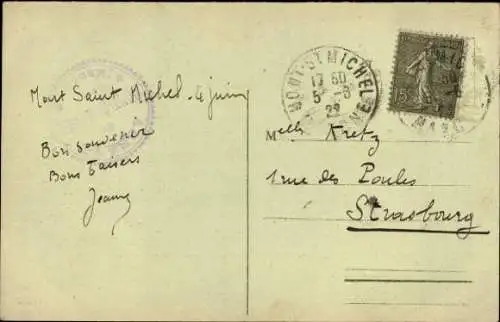 Mont Saint Michel
Bon souvenir
Bons baisers
MONT-ST-MICHEL
17 60
5
22
15
Melles Kretz
1 rue des Poules
Strasbourg